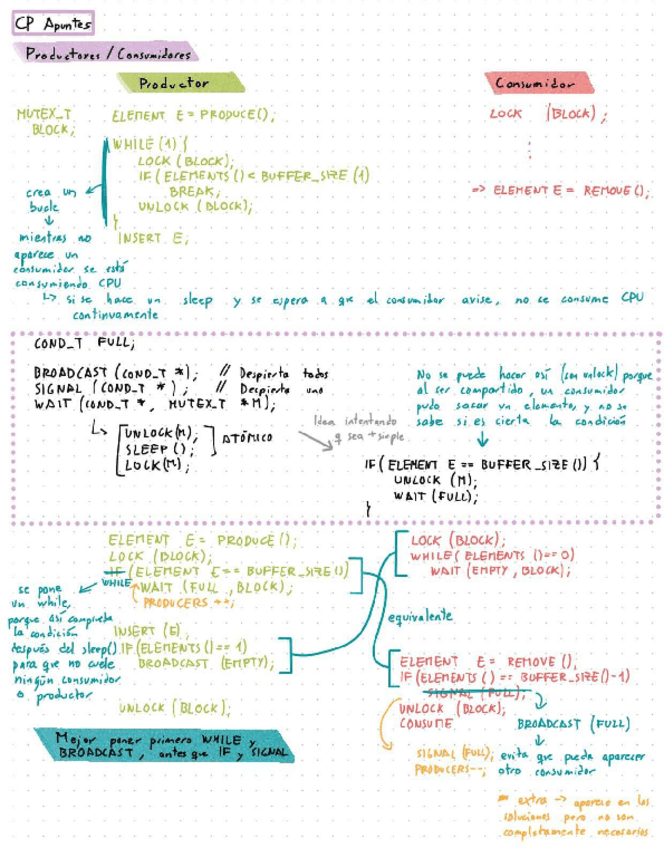 CP Apuntes
Productores / Consumidores
Productor
Consumidor
MUTEX_T
BLOCK;
ELEMENT E = PRODUCE();
WHILE (1) {
LOCK (BLOCK);
IF (ELEMENTS() < BUFFER_SIZE (1)
BREAK;
UNLOCK (BLOCK);
}
INSERT E;
LOCK (BLOCK);
⋮
=> ELEMENT E = REMOVE();
crea un
bucle
↓
mientras no
aparece un
consumidor se está
consumiendo CPU
↳ si se hace un sleep y se espera a que el consumidor avise, no se consume CPU
continuamente
COND_T FULL;
BROADCAST (COND_T *); // Despierta todos
SIGNAL (COND_T *); // Despierta uno
WAIT (COND_T *, MUTEX_T *M);
↳ UNLOCK(M);
SLEEP();
LOCK(M);
ATÓMICO
Idea intentando
q sea + simple
No se puede hacer así (con unlock) porque
al ser compartido, un consumidor
pudo sacar un elemento, y no se
sabe si es cierta la condición
IF (ELEMENT E == BUFFER_SIZE()) {
UNLOCK (M);
WAIT (FULL);
}
ELEMENT E = PRODUCE();
LOCK (BLOCK);
IF (ELEMENT E == BUFFER_SIZE())
WHILE
WAIT (FULL, BLOCK);
PRODUCERS ++;
INSERT (E),
IF (ELEMENTS() == 1)
BROADCAST (EMPTY);
UNLOCK (BLOCK);
se pone
un while,
porque así comprueba
la condición
después del sleep()
para que no cuele
ningún consumidor
o productor
LOCK (BLOCK);
WHILE (ELEMENTS () == 0)
WAIT (EMPTY, BLOCK);
equivalente
ELEMENT E = REMOVE ();
IF (ELEMENTS () == BUFFER_SIZE()-1)
SIGNAL (FULL);
UNLOCK (BLOCK);
CONSUME
BROADCAST (FULL)
↓
evita que pueda aparecer
otro consumidor
SIGNAL (FULL);
PRODUCERS--;
Mejor poner primero WHILE y
BROADCAST, antes que IF y SIGNAL
* extra -> aparece en las
soluciones pero no son
completamente necesarios